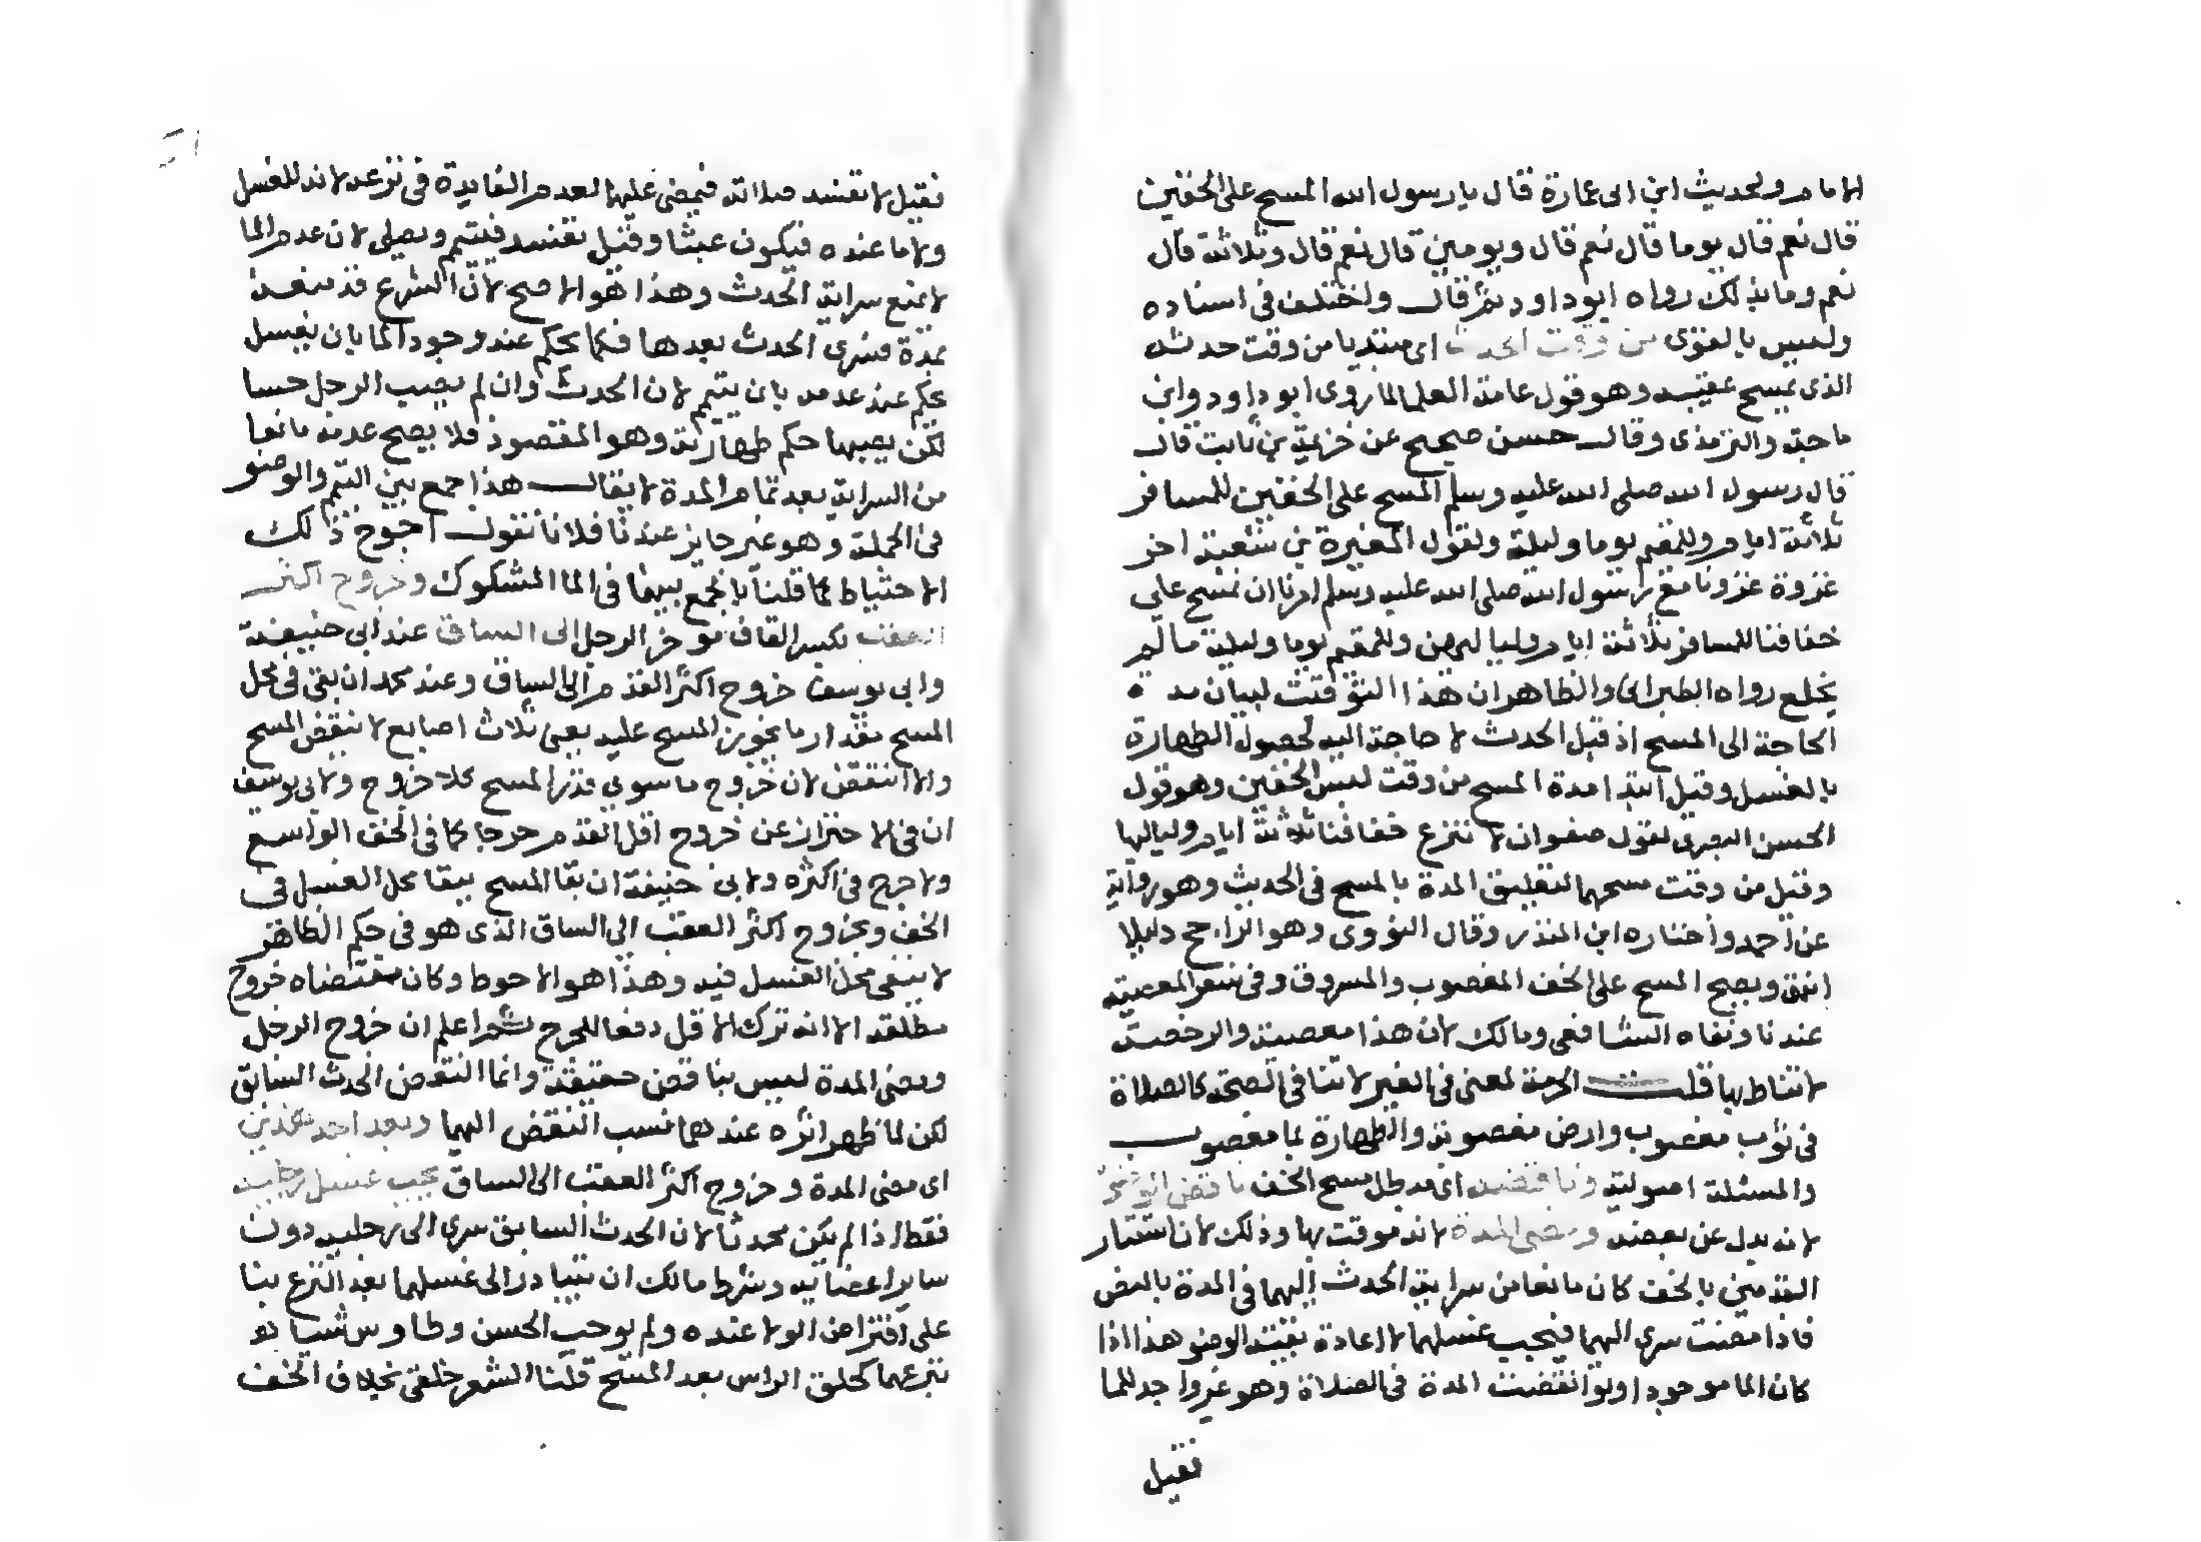 الامام ولحديث ابن ابى عمارة قال يا رسول الله المسح على الخفين
قال نعم قال يوما قال نعم قال ويومين قال نعم قال وثلاثة قال
نعم وما بذلك رواه ابو داود ثم قال واختلف فى اسناده
وليس بالقوى من وقت الحدث اى مبتديا من وقت حدثه
الذى يمسح عقيبه وهو قول عامة العلما لما روى ابو داود وابن
ماجة والترمذى وقال حسن صحيح عن خزيمة بن ثابت قال
قال رسول الله صلى الله عليه وسلم المسح على الخفين للمسافر
ثلاثة ايام وللمقيم يوما وليلة ولقول المغيرة بن شعبة اخر
غزوة غزونا مع رسول الله صلى الله عليه وسلم امرنا ان نمسح على
خفافنا للمسافر ثلاثة ايام ولياليهن وللمقيم يوما وليلة ما لم
يخلع رواه الطبرانى والظاهر ان هذا التوقيت لبيان مدة
الحاجة الى المسح اذ قبل الحدث لا حاجة اليه لحصول الطهارة
بالغسل وقيل ابتدا مدة المسح من وقت لبس الخفين وهو قول
الحسن البصرى لقول صفوان لا ننزع خفافنا ثلاثة ايام ولياليها
وقيل من وقت مسحهما لتعليق المدة بالمسح فى الحديث وهو رواية
عن احمد واختاره ابن المنذر وقال النووى وهو الراجح دليلا
انتهى ويصح المسح على الخف المغصوب والمسروق وفى سفر المعصية
عندنا ونفاه الشافعى ومالك لان هذا معصية والرخصة
لا تناط بها قلت الحرمة لمعنى فى الغير لا تنافى الصحة كالصلاة
فى ثوب مغصوب وارض مغصوبة والطهارة بما مغصوب
والمسئلة اصولية وناقضه اى مبطل مسح الخف ناقض الوضو
لانه بدل عن بعضه ومضى المدة لانه موقت بها وذلك لان استتار
القدمين بالخف كان مانعا من سراية الحدث اليهما فى المدة بالنص
فاذا مضت سرى اليهما فيجب غسلهما لا اعادة بقية الوضو هذا اذا
كان الما موجودا ولو انقضت المدة فى الصلاة وهو غير واجد للما
فقيل
فقيل لا تفسد صلاته فيمضى عليها لعدم الفايدة فى نزعه لانه للغسل
ولا ما عنده فيكون عبثا وقيل تفسد فيتيمم ويصلى لان عدم الما
لا يمنع سراية الحدث وهذا هو الاصح لان الشرع قدر منعه
بمدة فسرى الحدث بعدها فكما يحكم عند وجود الما بان يغسل
يحكم عند عدمه بان يتيمم لان الحدث وان لم يصب الرجل حسا
لكن يصيبها حكم طهارته وهو المقصود فلا يصح عدمه مانعا
من السراية بعد تمام المدة لا يقال هذا جمع بين التيمم والوضو
فى الجملة وهو غير جايز عندنا فلانا نقول احوج ذالك
الاحتياط كما قلنا بالجمع بينهما فى الما المشكوك وخروج اكثر
العقب بكسر القاف موخر الرجل الى الساق عند ابى حنيفة
وابى يوسف خروج اكثر القدم الى الساق وعند محمد ان بقى فى محل
المسح مقدار ما يجوز المسح عليه يعنى ثلاث اصابع لا ينقض المسح
والا انتقض لان خروج ما سوى قدر المسح كلا خروج ولابى يوسف
ان فى الاحتراز عن خروج اقل القدم حرجا كما فى الخف الواسع
ولا حرج فى اكثره ولابى حنيفة ان بقا المسح ببقا محل الغسل فى
الخف وبخروج اكثر العقب الى الساق الذى هو فى حكم الظاهر
لا يبقى محل الغسل فيه وهذا هو الاحوط وكان مقتضاه خروج
مطلقه الا انه ترك الاقل دفعا للحرج ثم اعلم ان خروج الرجل
ومضى المدة ليس بناقض حقيقة وانما الناقض الحدث السابق
لكن لما ظهر اثره عندهما نسب النقض اليهما وبعد احد هذين
اى مضى المدة وخروج اكثر العقب الى الساق يجب غسل رجليه
فقط اذا لم يكن محدثا لان الحدث السابق سرى الى رجليه دون
ساير اعضايه وشرط مالك ان يتبادر الى غسلهما بعد النزع بنا
على افتراض الولا عنده ولم يوجب الحسن وطاوس شيا
بنزعهما كحلق الراس بعد المسح قلنا الشعر خلقى بخلاف الخف